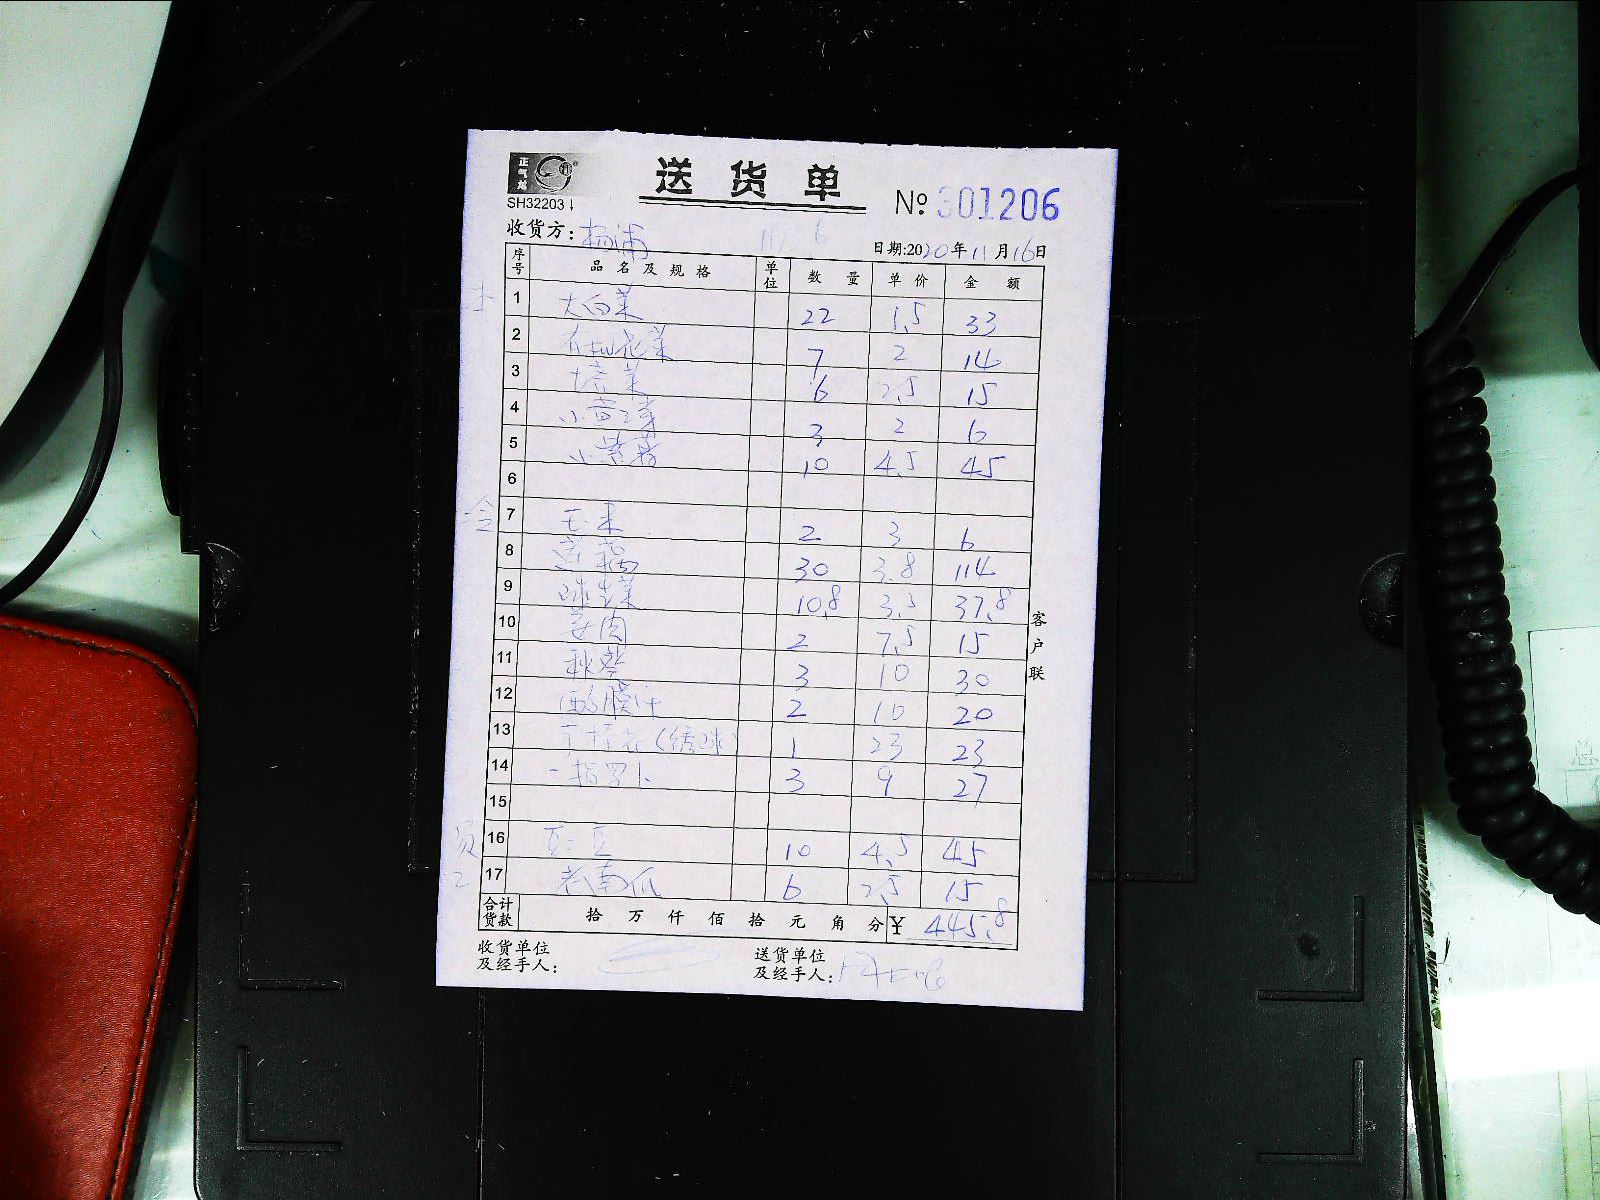 正气
送货单
SH32203
№ 301206
收货方: 杨浦
日期:2020年11月16日
序号 品名及规格 单位 数量 单价 金额
1 大白菜 22 1.5 33
2 有机花菜 7 2 14
3 塔菜 6 2.5 15
4 小 6 3 2 6
5 小 10 4.5 45
6
7 玉米 2 3 6
8 30 3.8 114
9 球生菜 10.8 3.5 37.8
10 姜肉 2 7.5 15
11 秋葵 3 10 30
12 2 10 20
13 (绣球) 1 23 23
14 一指罗卜 3 9 27
15
16 豆 10 4.5 45
17 老南瓜 6 2.5 15
合计货款 拾 万 仟 佰 拾 元 角 分 ¥ 445.8
收货单位及经手人:
送货单位及经手人:
客户联